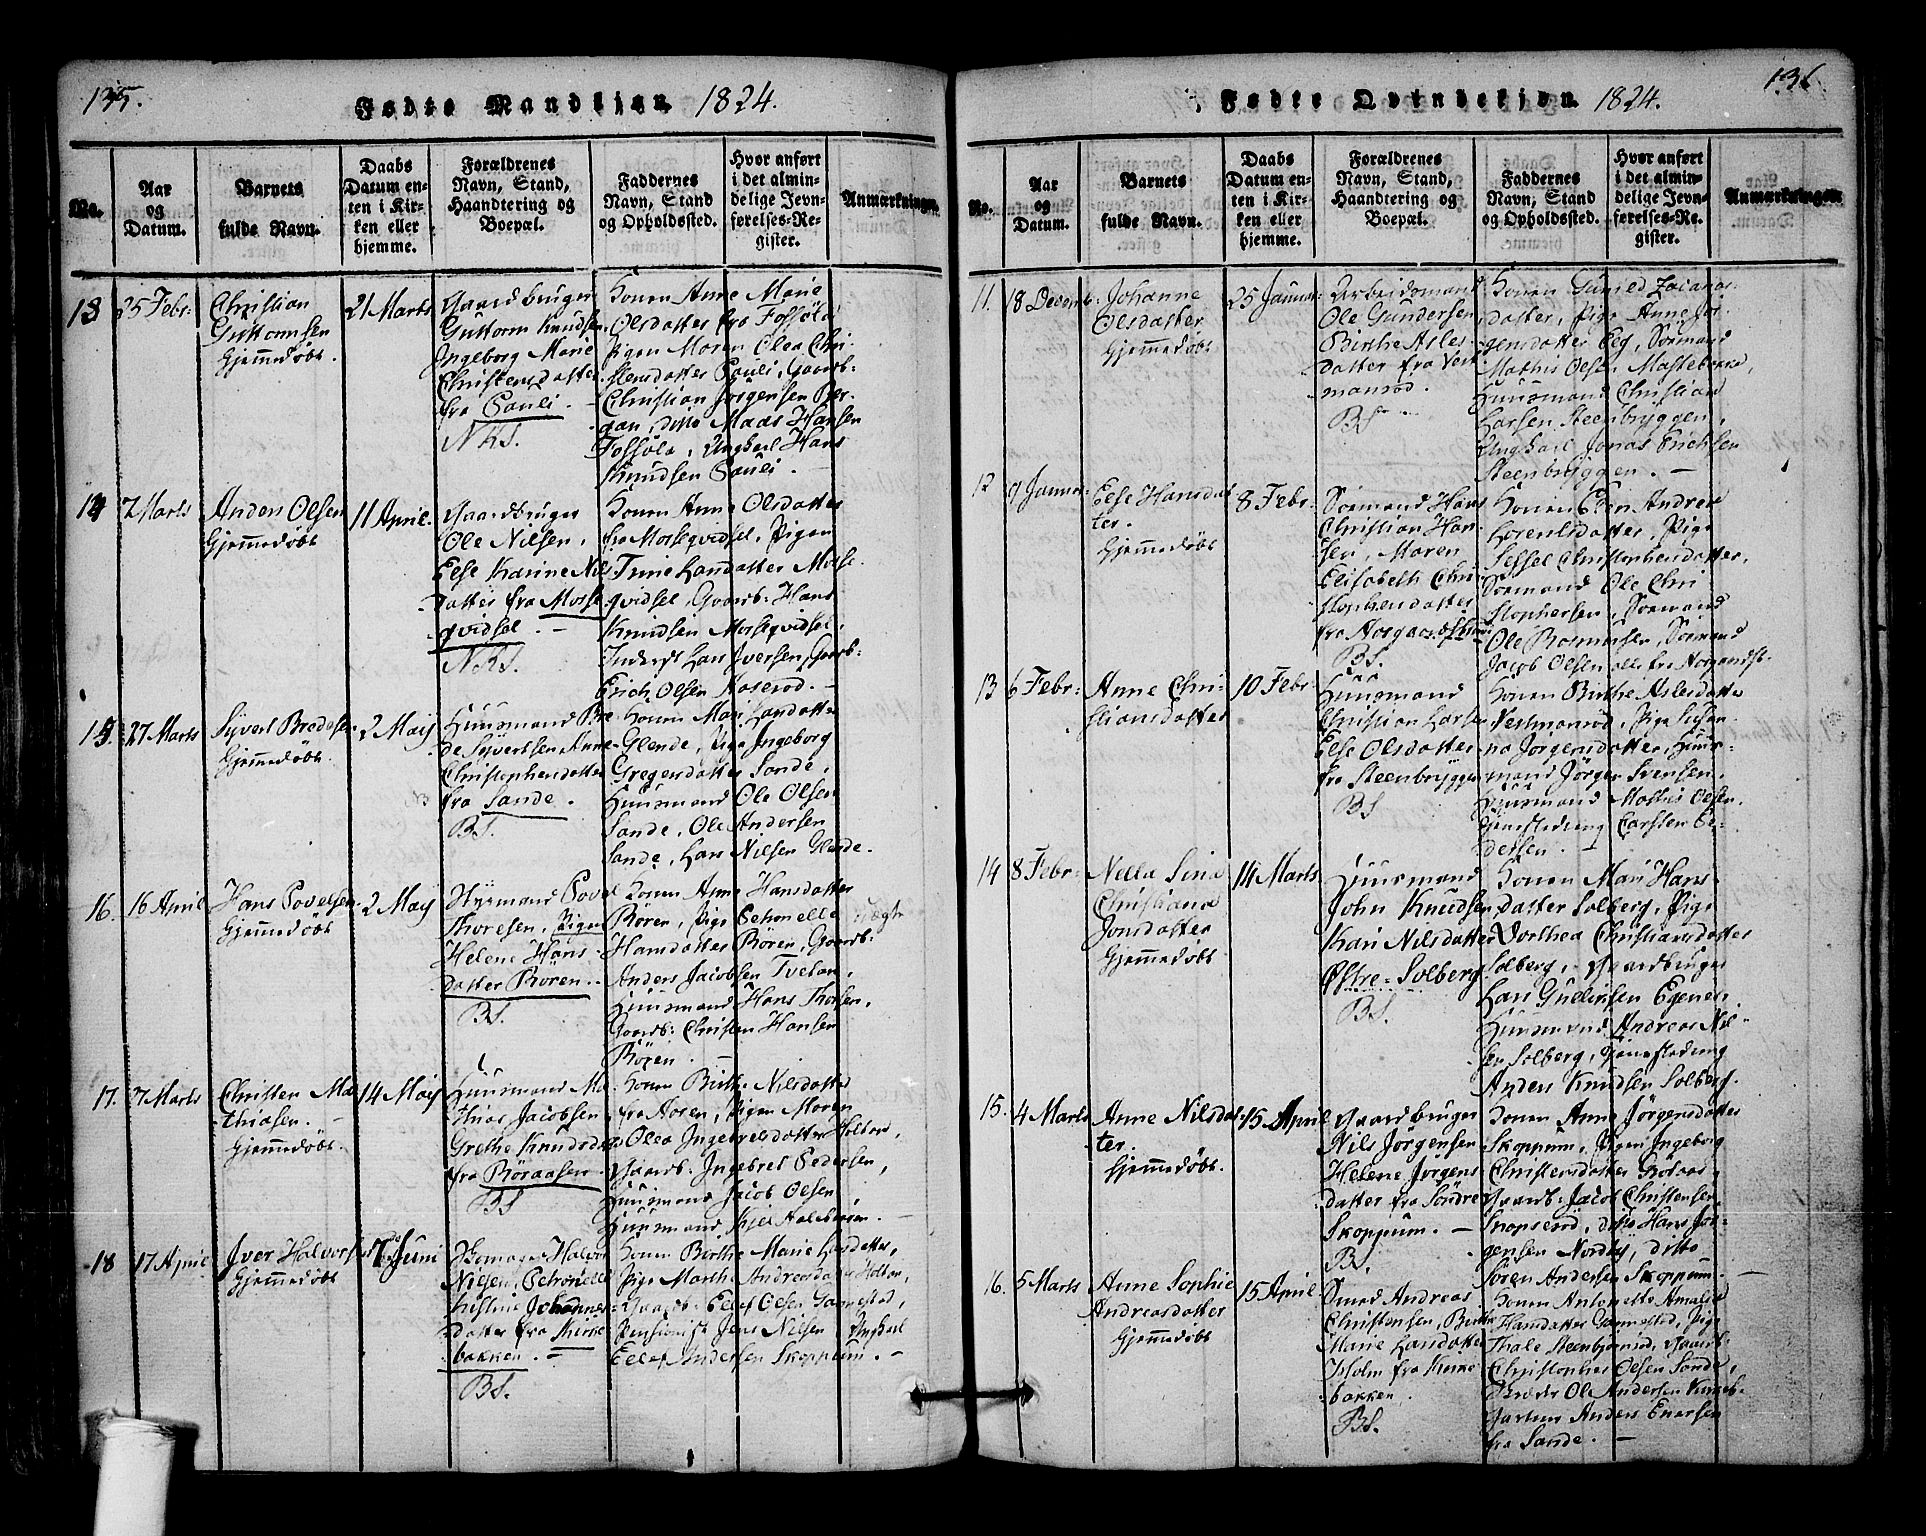 135.
Fødte Mandkjøn 1824.
No.
Aar
og
Datum.
Barnets
fulde Navn.
Daabs
Datum en-
ten i Kir-
ken eller
hjemme.
Forældrenes
Navn, Stand,
Haandtering og
Boepæl.
Faddernes
Navn, Stand
og Opholdssted.
Hvor anført
i det almin-
delige Jevn-
førelses-Re-
gister.
Anmærkninger.
13
25 Febr:
Christian
Guttormsen
Hjemmedøbt
21 Marts
Gaardbruger
Guttorm Knudsen
Ingeborg Marie
Christensdatter
fra Pauli. -
Konen Anne Marie
Olsdatter fra Fossola
Pigen Maren Olea Chri-
stensdatter Pauli, Gaardb:
Christian Jørgensen Ber-
gan, ditto Mads Hansen
Fossola, Ungkarl Hans
Knudsen Pauli. -
14
7 Marts
Anders Olsen
Hjemmedøbt
11 April.
Gaardbruger
Ole Nilsen,
Else Karine Nils
datter fra Mosse
qvidsel. -
Konen Anne Olsdatter
fra Morseqvidsel, Pigen
Trine Larsdatter Morse
qvidsel, Gaardb: Hans
Knudsen Morseqvidsel,
Lars Iversen, Gaardb-
Erich Olsen Aaserød. -
15.
27 Marts
Syvert Bredesen
Hjemmedøbt.
2 Maij
Huusmand Bre
de Syvertsen, Anne
Christophersdatter
fra Sande.
BS.
Konen Mari Larsdatter
Glende, Pige Ingeborg
Gregersdatter Sande,
Huusmand Ole Olsen
Sande, Ole Andersen
Sande, Lars Nilsen Glende.
16.
16 April
Hans Povelsen.
Hjemmedøbt
2 Maij
Styrmand Povel
Thoresen, Pigen
Helene Hans
datter Røren..
BS.
Konen Anne Hansdatter
Røren, Pige Petronelle
Hansdatter Røren, Gaardb:
Anders Jacobsen Tveten,
Huusmand Hans Thorsen,
Gaardb: Christen Hansen
Røren. -
17.
7 Marts
Christen Ma
thiasen. -
Hjemmedøbt.
14 Maij
Huusmand Ma
thias Jacobsen
Grethe Knudsdat
fra Røraasen.
BS
Konen Birthe Nilsdatter
fra Aosen, Pigen Maren
Olea Ingebretsdatter Holtan,
Gaardb. Ingebret Pedersen,
Huusmand Jacob Olsen,
Huusmand Kjel
18
17 April
Iver Halvorsen
Hjemmedøbt
7de Juni
Halvor
Nilsen, Petronelle
Kristine Johannes-
datter fra Kirke
bakken. -
BS.
Konen Birthe Marie Larsdatter,
Pige Marthe Andreasdatter Holtan,
Gaardb: Ellef Olsen Gannestad,
Pensionist Jens Nilsen Ungkarl
Ellef Andersen Skoppum. -
136
Fødte Qvindekjøn. 1824.
No.
Aar
og
Datum.
Barnets
fulde Navn.
Daabs
Datum en-
ten i Kir-
ken eller
hjemme.
Forældrenes
Navn, Stand,
Haandtering og
Boepæl.
Faddernes
Navn, Stand
og Opholdssted.
Hvor anført
i det almin-
delige Jevn-
førelses-Re-
gister.
Anmærkninger.
11.
18 Decemb:
Johanne
Olsdatter
Hjemmedøbt
25 Januar:
Arbeidsmand
Ole Gundersen
Birthe Asles-
datter fra Vest
mansrød.
BS
Konen Gunild Zacarias-
datter, Pige Anne Jør-
gensdatter Eeg, Sørmand
Mathis Olsen Mastebakke,
Huusmand Christian
Larsen Steenbryggen,
Ungkarl Jonas Erichsen
Steenbryggen. -
12
9 Januar
Else Hansdat
ter.
Hjemmedøbt
8 Febr:
Sørmand Hans
Christian Han
sen, Maren
Elisabeth Chri
stophersdatter
BS.
Konen Ellen Andrea
Lorentsdatter, Pige
Sessel Christophersdatter,
Sørmand Ole Chri
stophersen, Sørmand
Ole Rasmussen, Sørmand
Jacob Olsen alle fra
13
6 Febr:
Anne Chri
stiansdatter
10 Febr
Huusmand
Christian Larsen
Else Olsdatter
fra Steenbryggen
BS
Konen Birthe Aslesdatter
Vestmansrød, Pige Susan-
na Jørgensdatter, Huus-
mand Jørgen Svensen,
Huusmand Mathis Olsen,
Tjenestedreng Carsten Pe-
dersen. -
14
8 Febr:
Nella Sina
Christiana
Jonsdatter
Hjemmedøbt
14 Marts
Huusmand
John Knudsen
Kari Nilsdatter
Østre-Solberg
BS.
Konen Mari Hans
datter Solberg, Pige
Dorthea Christiansdatter
Solberg, Gaardbruger
Lars Gullichsen Egenes,
Huusmand Andreas Nil-
sen Solberg, Tjenestedreng
Anders Knudsen Solberg.
15.
4 Marts
Anne Nilsdat-
ter.
Hjemmedøbt.
15 April
Gaardbruger
Nils Jørgensen
Helene Jørgens
datter fra Søndre
Skoppum. -
B.
Konen Anne Jørgensdatter
Skoppum, Pigen Ingeborg
Christensdatter
Gaardb: Jacob Christensen
Skopserød, ditto Hans Jør-
gensen Nordby, ditto
Søren Andersen Skoppum. -
16.
5 Marts
Anne Sophie
Andreasdatter
Hjemmedøbt
15 April
Smed Andreas
Christensen, Birthe
Marie Larsdatter
Holm fra Kirke
bakken.
BS.
Konen Antonette Amalie
Hansdatter Gannestad, Pige
Thale Steenbjørnrød, Gaardb
Christopher Olsen Sande,
Skræder Ole Andersen Kirkeb-
Anders Enersen
fra Sande. -